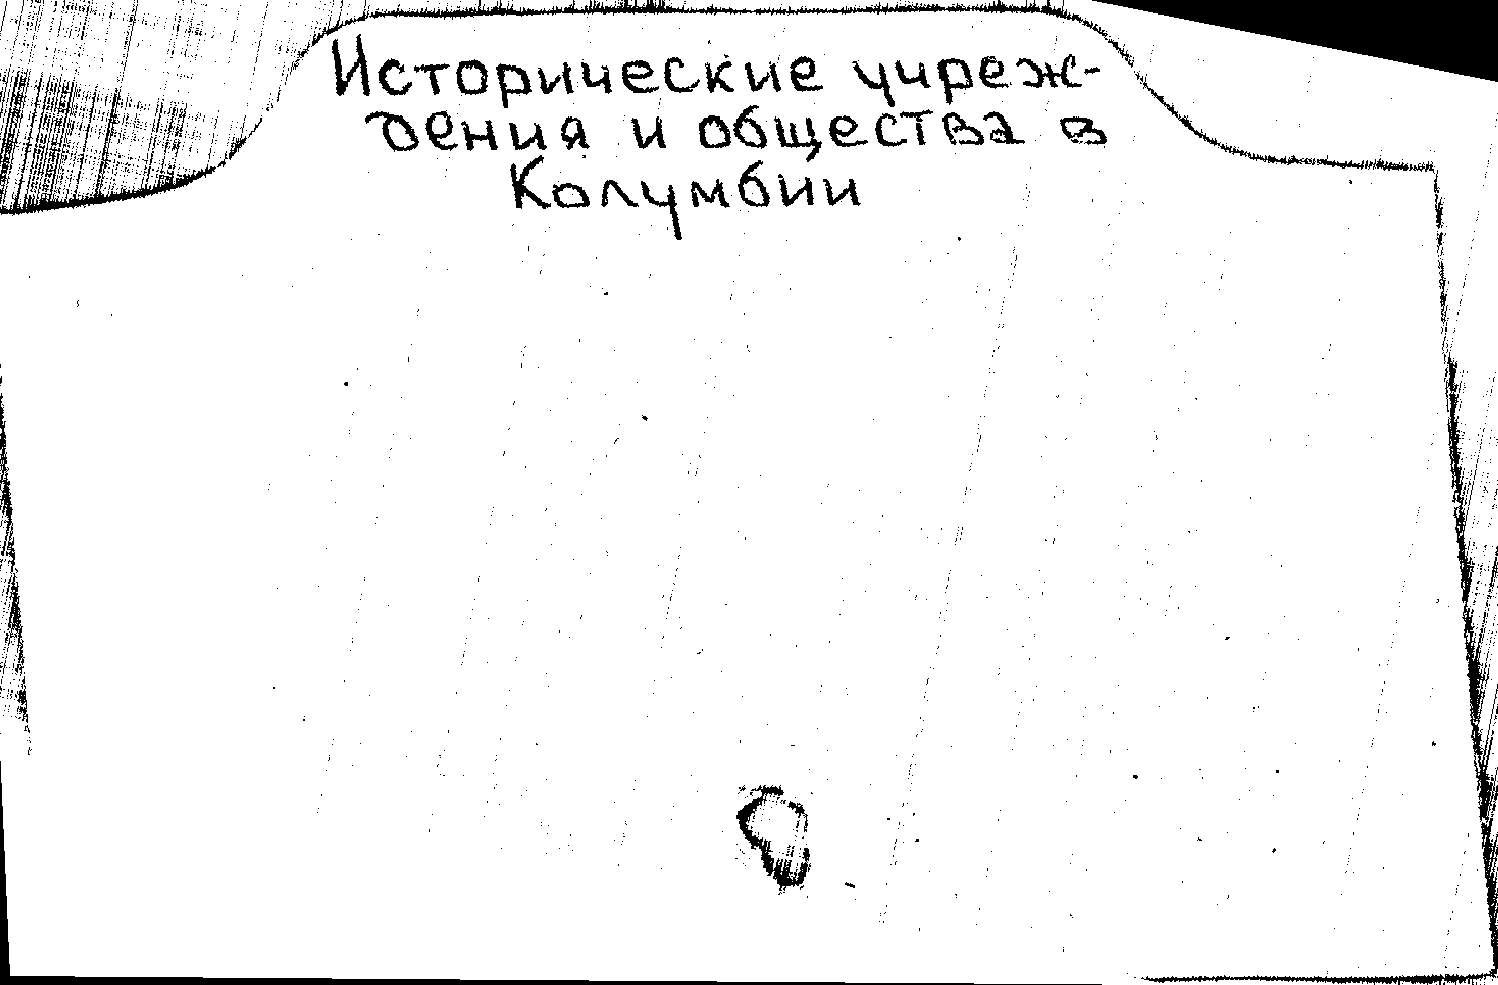 Исторические учреж-
дения и общества в
Колумбии